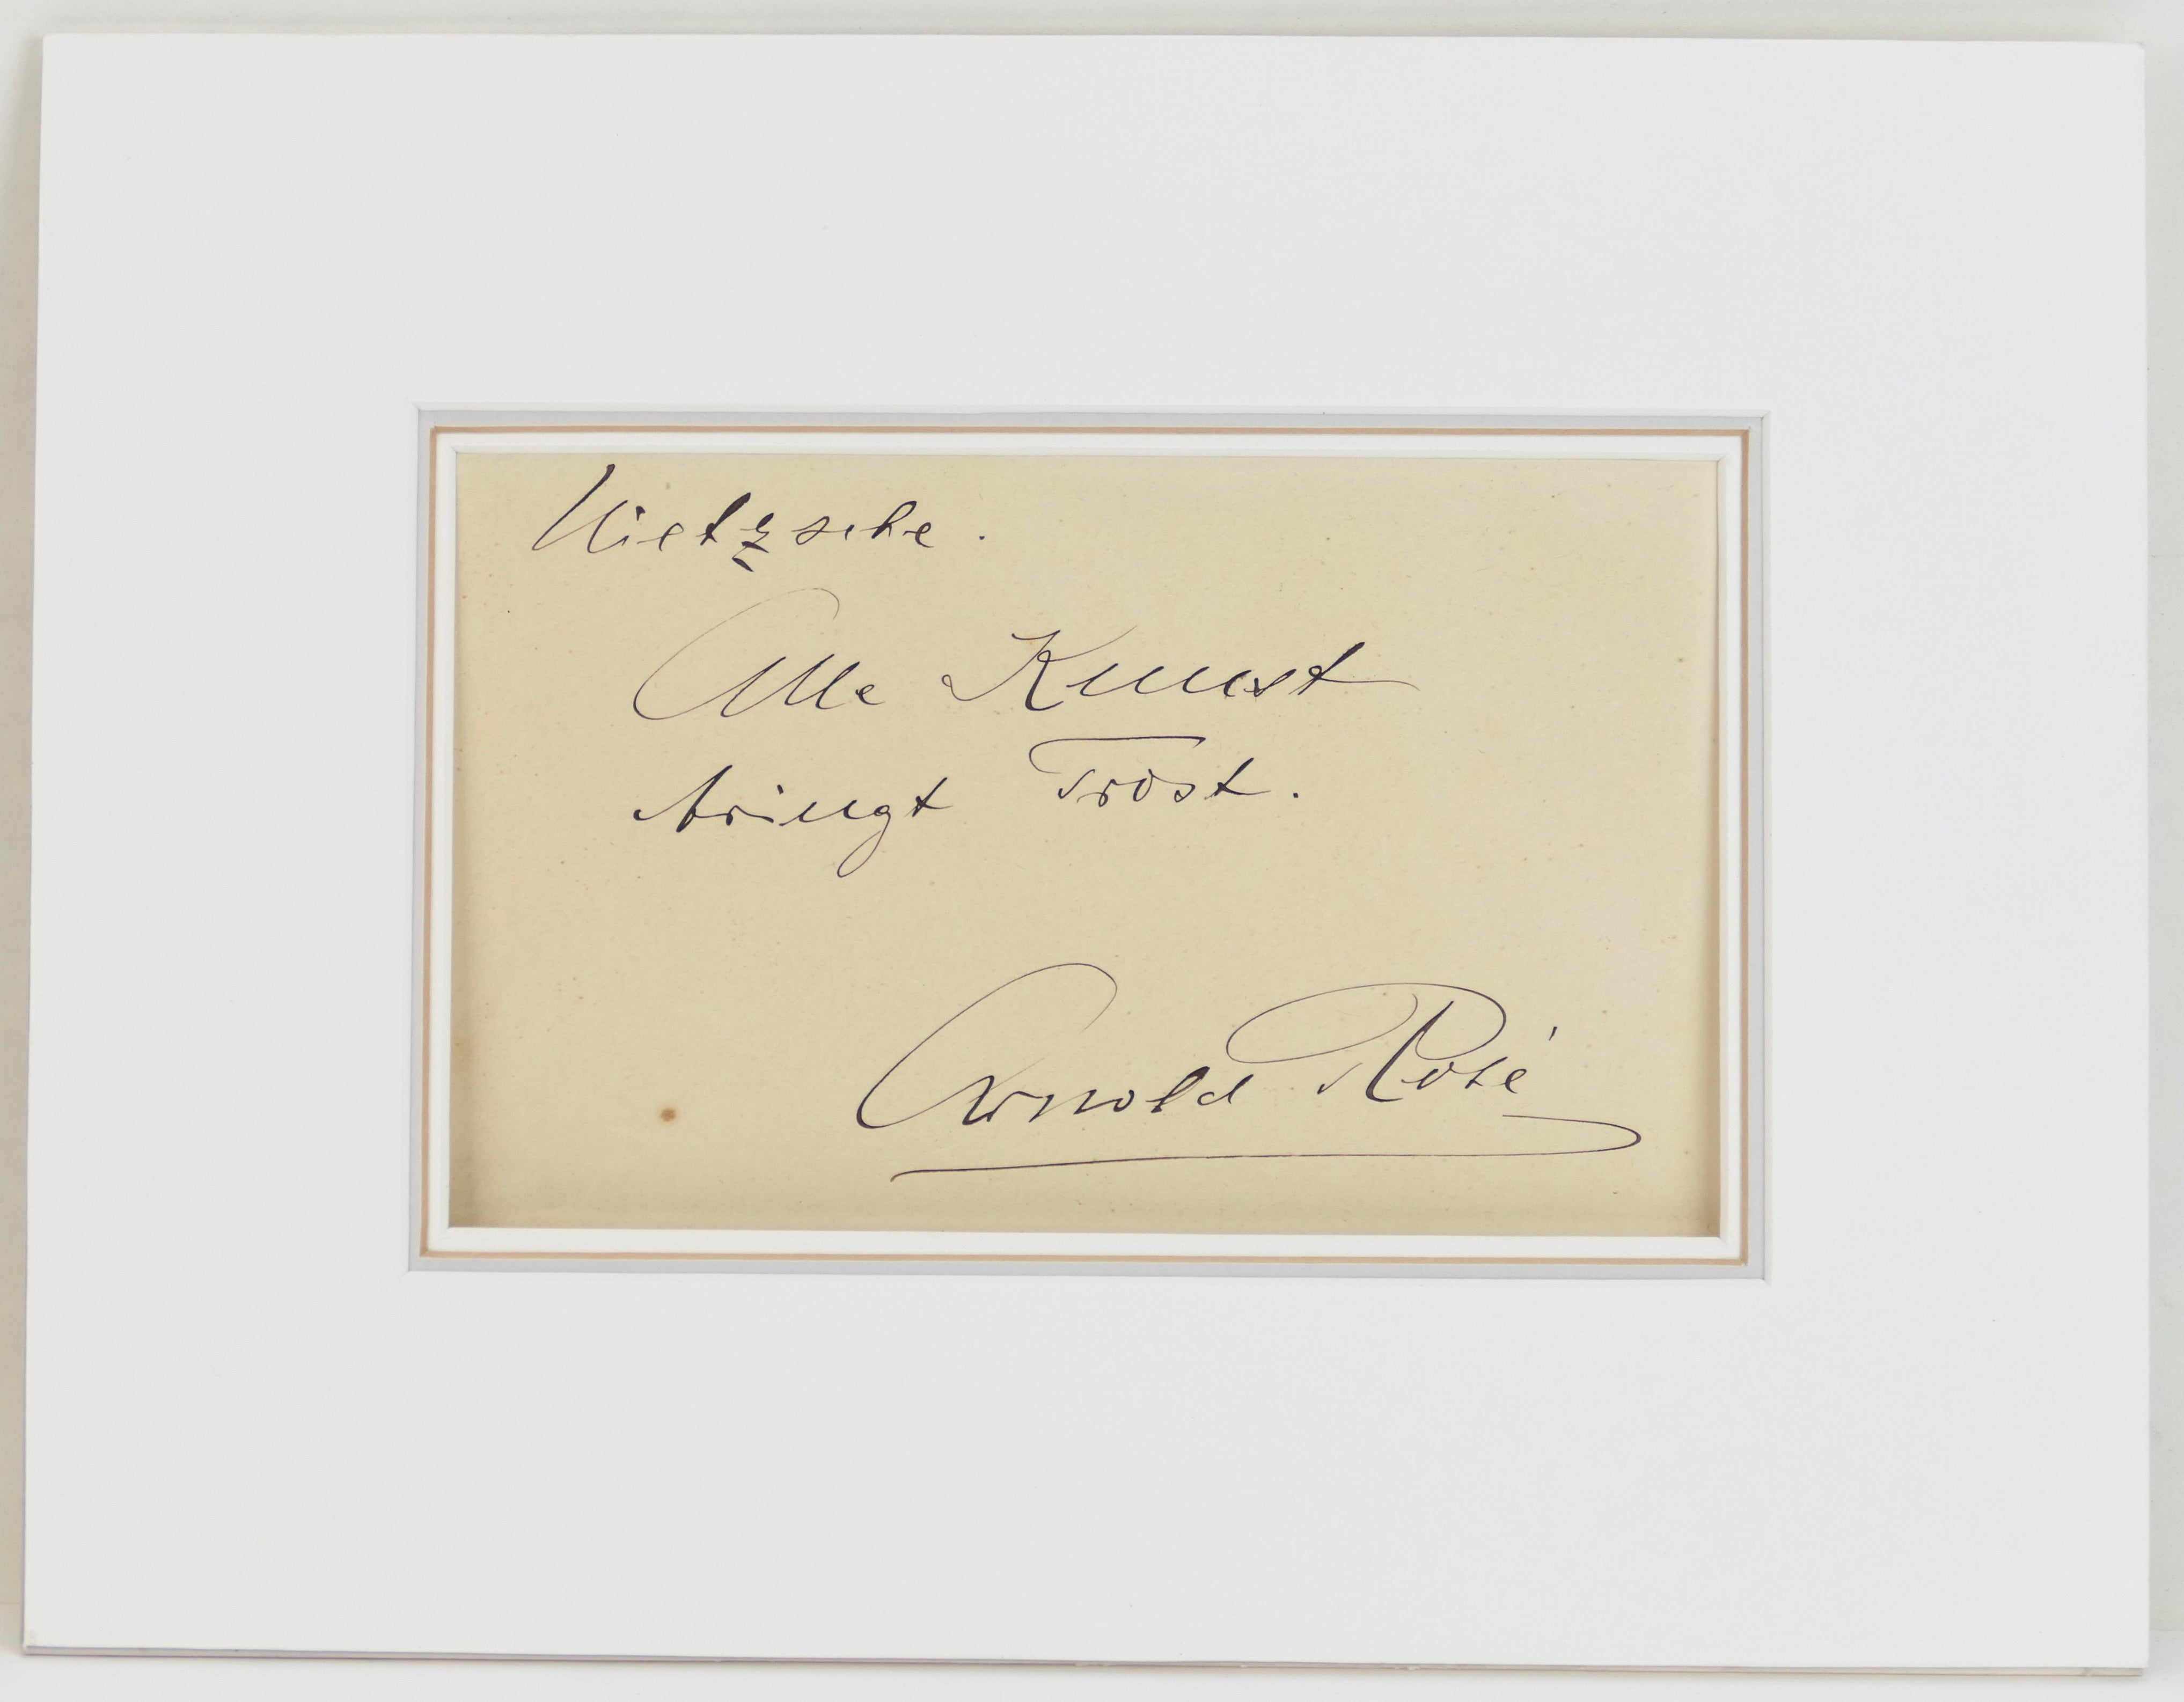 Nietzsche.
Alle Kunst
bringt Trost.
Arnold Rosé